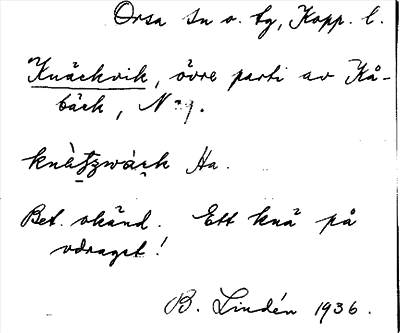 Orsa sn o. tg, Kopp. l.
Knäckvik, övre parti av Kå-
bäck, N
knätzwäck Ha.
Bet. okänd. Ett knä på
vdraget!
B. Lindén 1936.